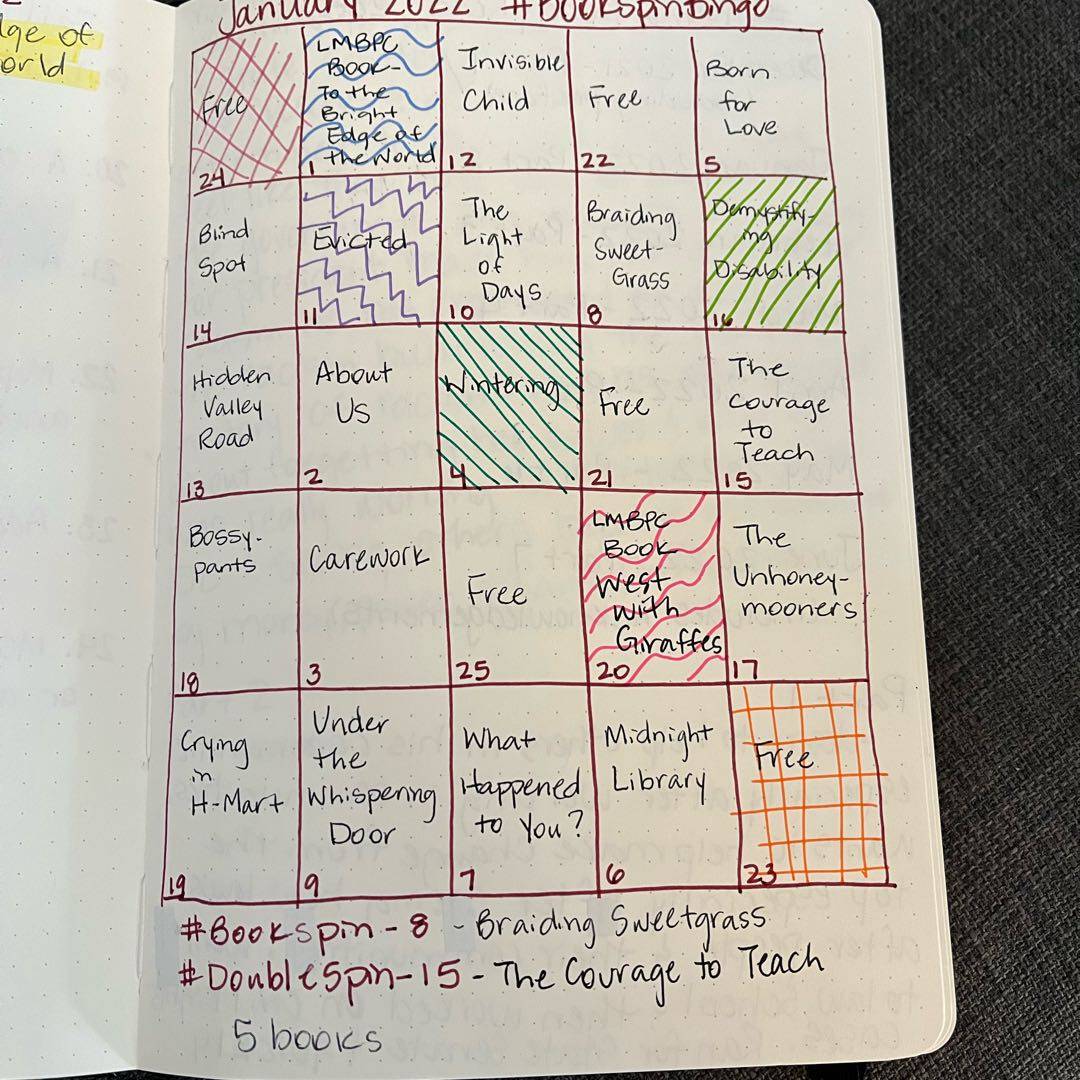 January 2022 #BookspinBingo
dge of
orld
Free
24
LMBPC
Book-
To the
Bright
Edge of
the World
1
Invisible
Child
12
Free
22
Born
for
Love
5
Blind
Spot
14
Evicted
11
The
Light
of
Days
10
Braiding
Sweet-
Grass
8
Demystify-
ing
Disability
16
Hidden
Valley
Road
13
About
Us
2
Wintering
4
Free
21
The
Courage
to
Teach
15
Bossy-
pants
18
Carework
3
Free
25
LMBPC
Book
West
with
Giraffes
20
The
Unhoney-
mooners
17
Crying
in
H-Mart
19
Under
the
Whispering
Door
9
What
Happened
to You?
7
Midnight
Library
6
Free
23
#Bookspin-8 - Braiding Sweetgrass
#DoubleSpin-15 - The Courage to Teach
5 books